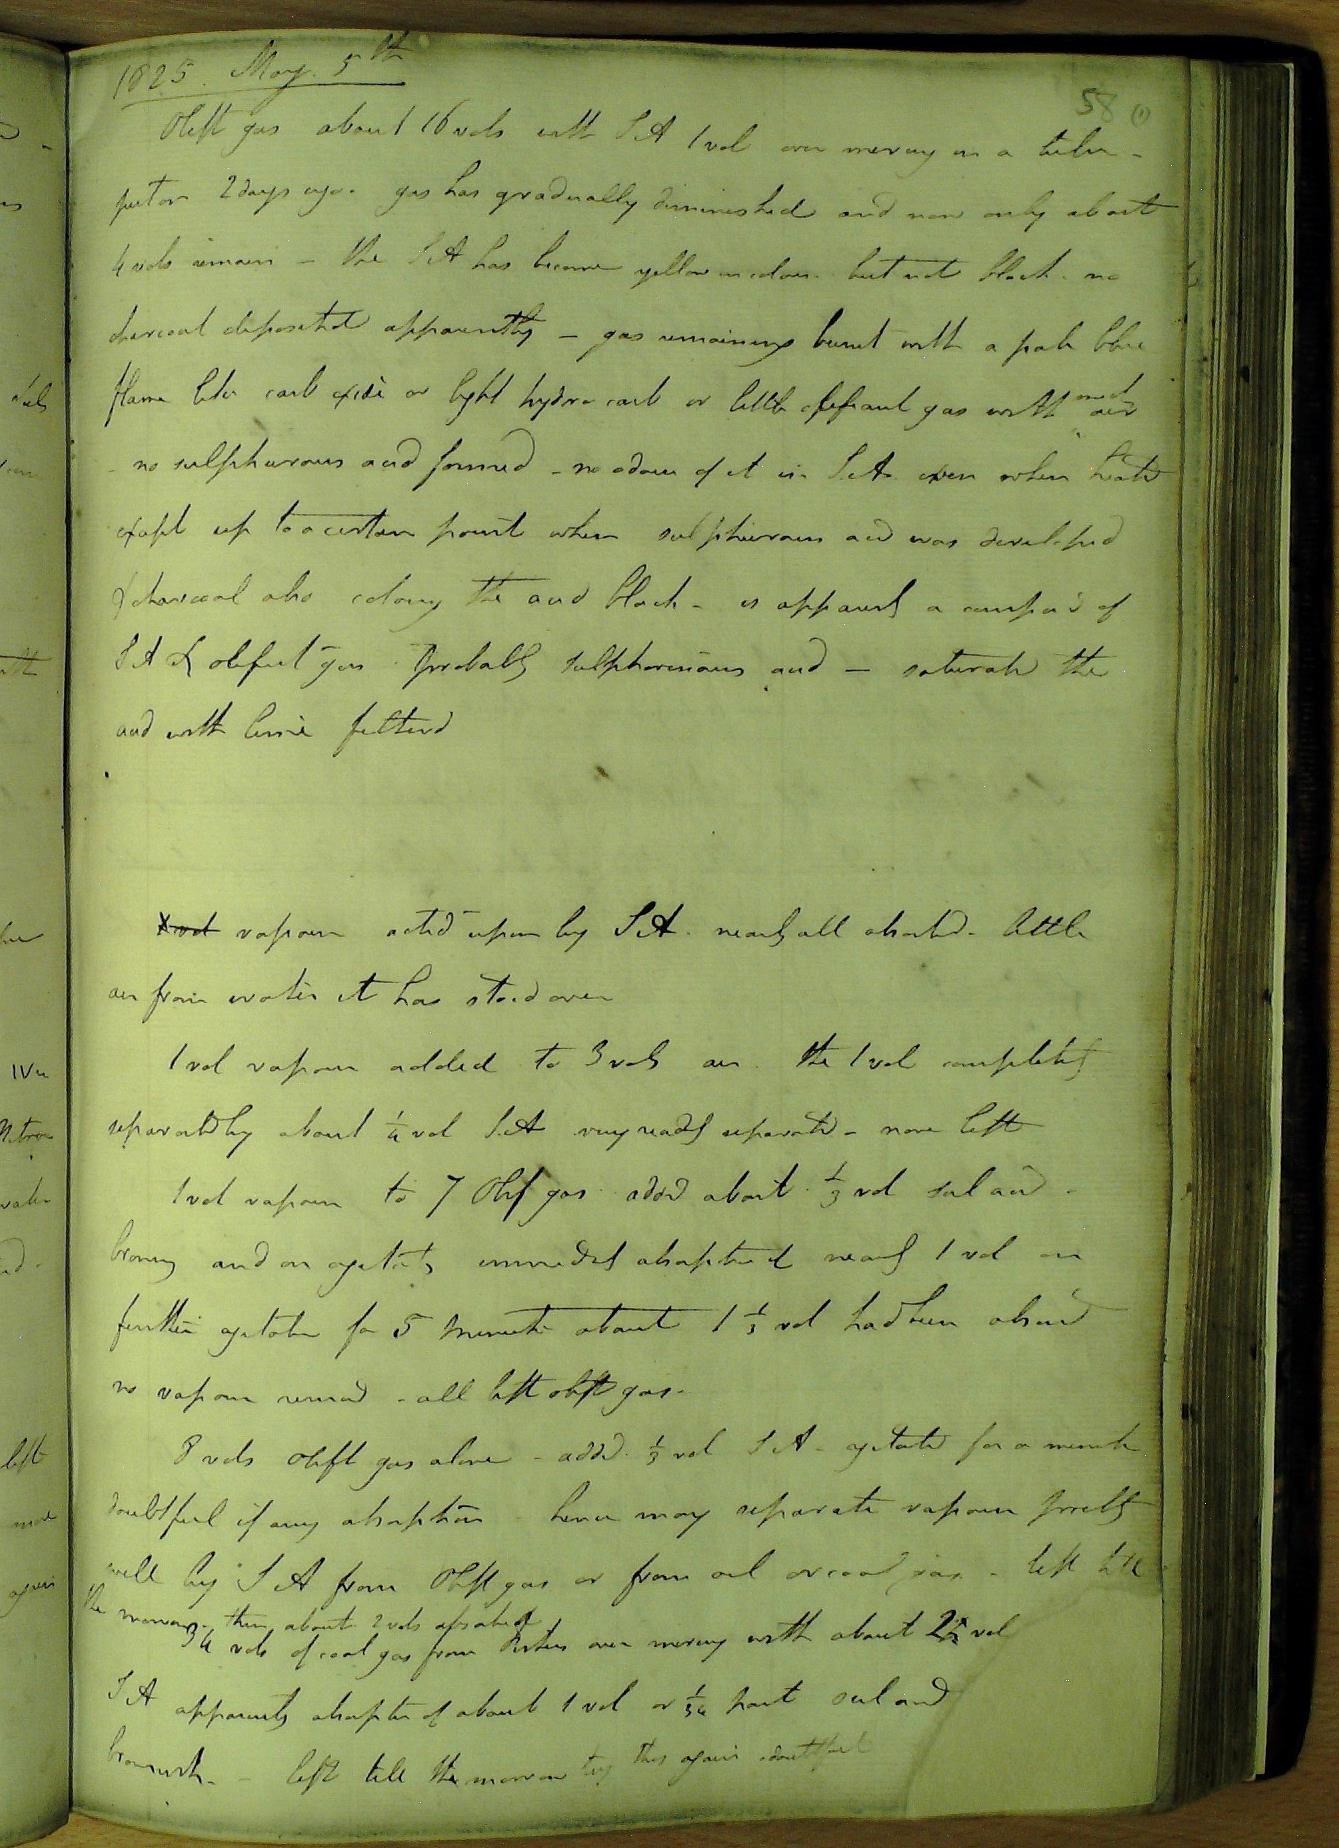 1825. May. 5th
58 (1)
Oleft gas about 16 vols with S A 1 vol over mercury in a tube -
put on 2 days ago. gas has gradually diminished and now only about
4 vols remain - the S A has become yellow in colour but not black. no
charcoal deposited apparently - gas remaining burnt with a pale blue
flame like carb oxide or light hydro carb or little olefiant gas with much air
- no sulphurous acid formed - no odour of it in S.A. even when heated
except up to a certain point when sulphurous acid was developed
& charcoal also colourg the acid black - is apparently a compd of
S A & olefient gas Probably sulphovinous acid - saturate the
acid with lime filterd
vapour acted upon by S A. nearly all absorbd - little
air from water it has stood over
1 vol vapour added to 3 vols air the 1 vol completely
separated by about 1/4 vol S.A very readily separated - none left
1 vol vapour to 7 Olef gas added about 1/3 vol sul acid -
browng and on agitatg immedly absorptn of nearly 1 vol on
further agitation for 5 minutes about 1 1/3 vol had been absorbd
no vapour remaind - all left oleft gas -
8 vols oleft gas alone - addd 1/3 vol S A - agitated for a minute
doubtful if any absorption hence may separate vapour pretty
well by S A from Oleft gas or from oil or coal gas - left till
the morrow - then about 2 vols absorbed
34 vols of coal gas from over mercury with about vol
S A apparently absorptn of about 1 vol or 1/34 part sul acid
brownish - - left till the morrow try this again doubtful